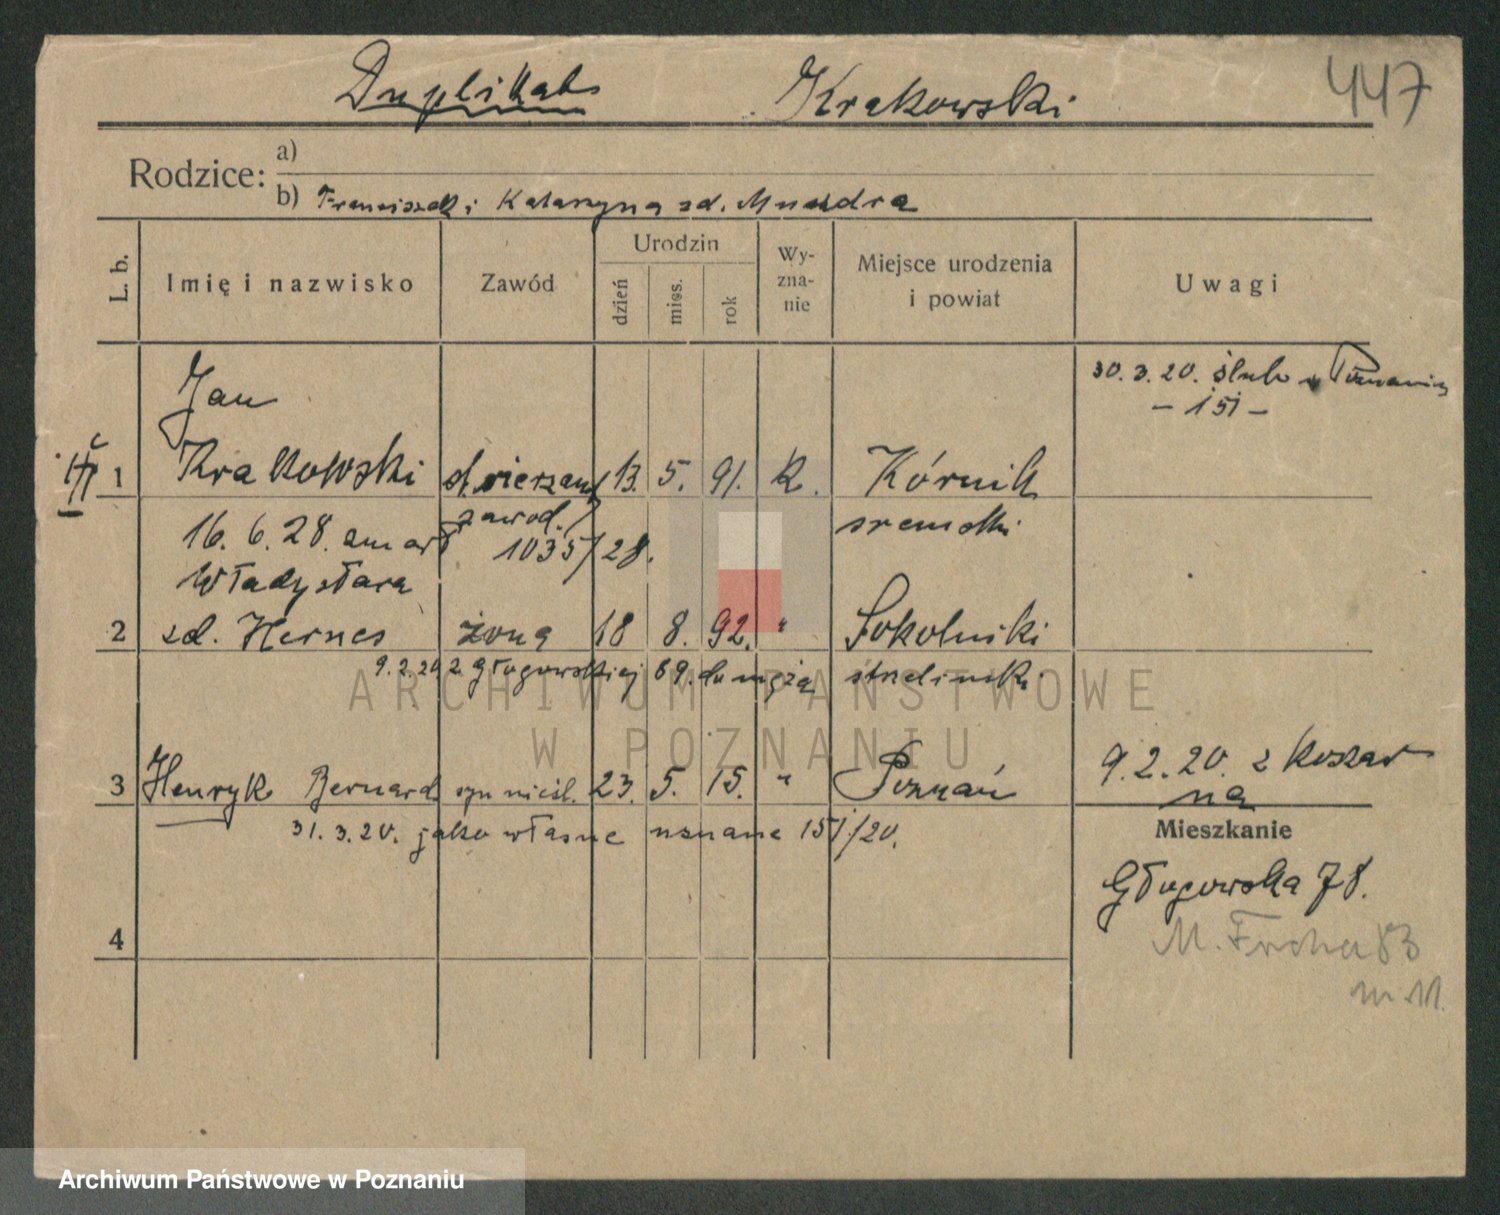 Duplikat Krakowski 447
Rodzice: a)
b) Franciszek i Katarzyna zd. Mundra
L. b. Imię i nazwisko Zawód Urodzin dzień mies. rok Wy-zna-nie Miejsce urodzenia i powiat Uwagi
30.3.20. ślub w Poznaniu
- 151 -
Jan
1 Krakowski st. sierżant 13. 5. 91. k. Kórnik
zawod. śremski
16. 6. 28. zmarł 1035/28.
Władysława
2 zd. Hernes żona 18 8. 92. " Sokolniki
9.2.20 z Głogowskiej 69. do męża
3 Henryk Bernard syn nieśl. 23. 5. 15. " Poznań 9.2.20. z koszar
na
31.3.20. jako własne uznane 151/20.
Mieszkanie
Głogowska 78.
M. Focha 83
m 11.
4
ARCHIWUM PAŃSTWOWE
W POZNANIU
Archiwum Państwowe w Poznaniu